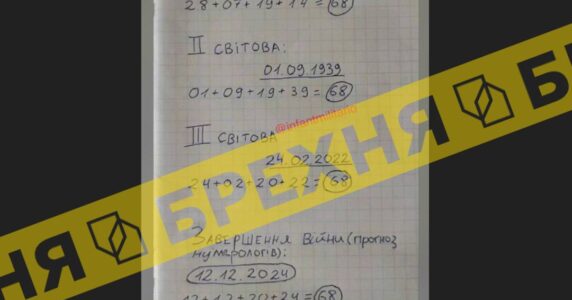 28+07+19+14 = 68
II СВІТОВА:
01.09.1939
01+09+19+39 = 68
@infantmilitario
III СВІТОВА
24.02.2022
24+02+20+22 = 68
БРЕХНЯ
ЗАВЕРШЕННЯ ВІЙНИ (прогноз
нумерологів):
12.12.2024
12+12+20+24 = 68